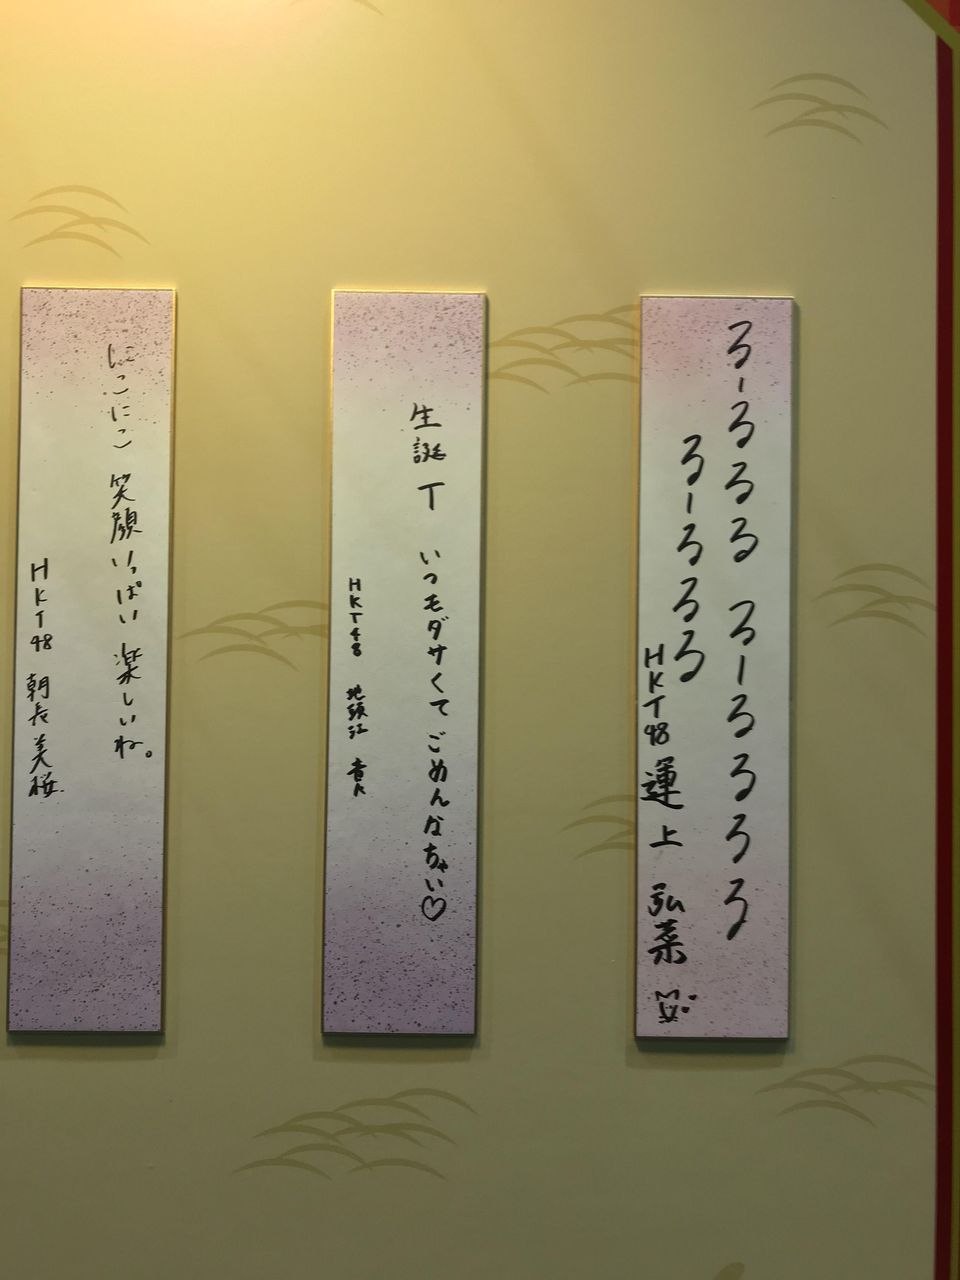 るーるるる るーるるるる
るーるるる
HKT48 運上 弘菜
生誕T いつもダサくて ごめんなちゃい♡
HKT48 地頭江 音々
にこにこ 笑顔いっぱい 楽しいね。
HKT48 朝長 美桜